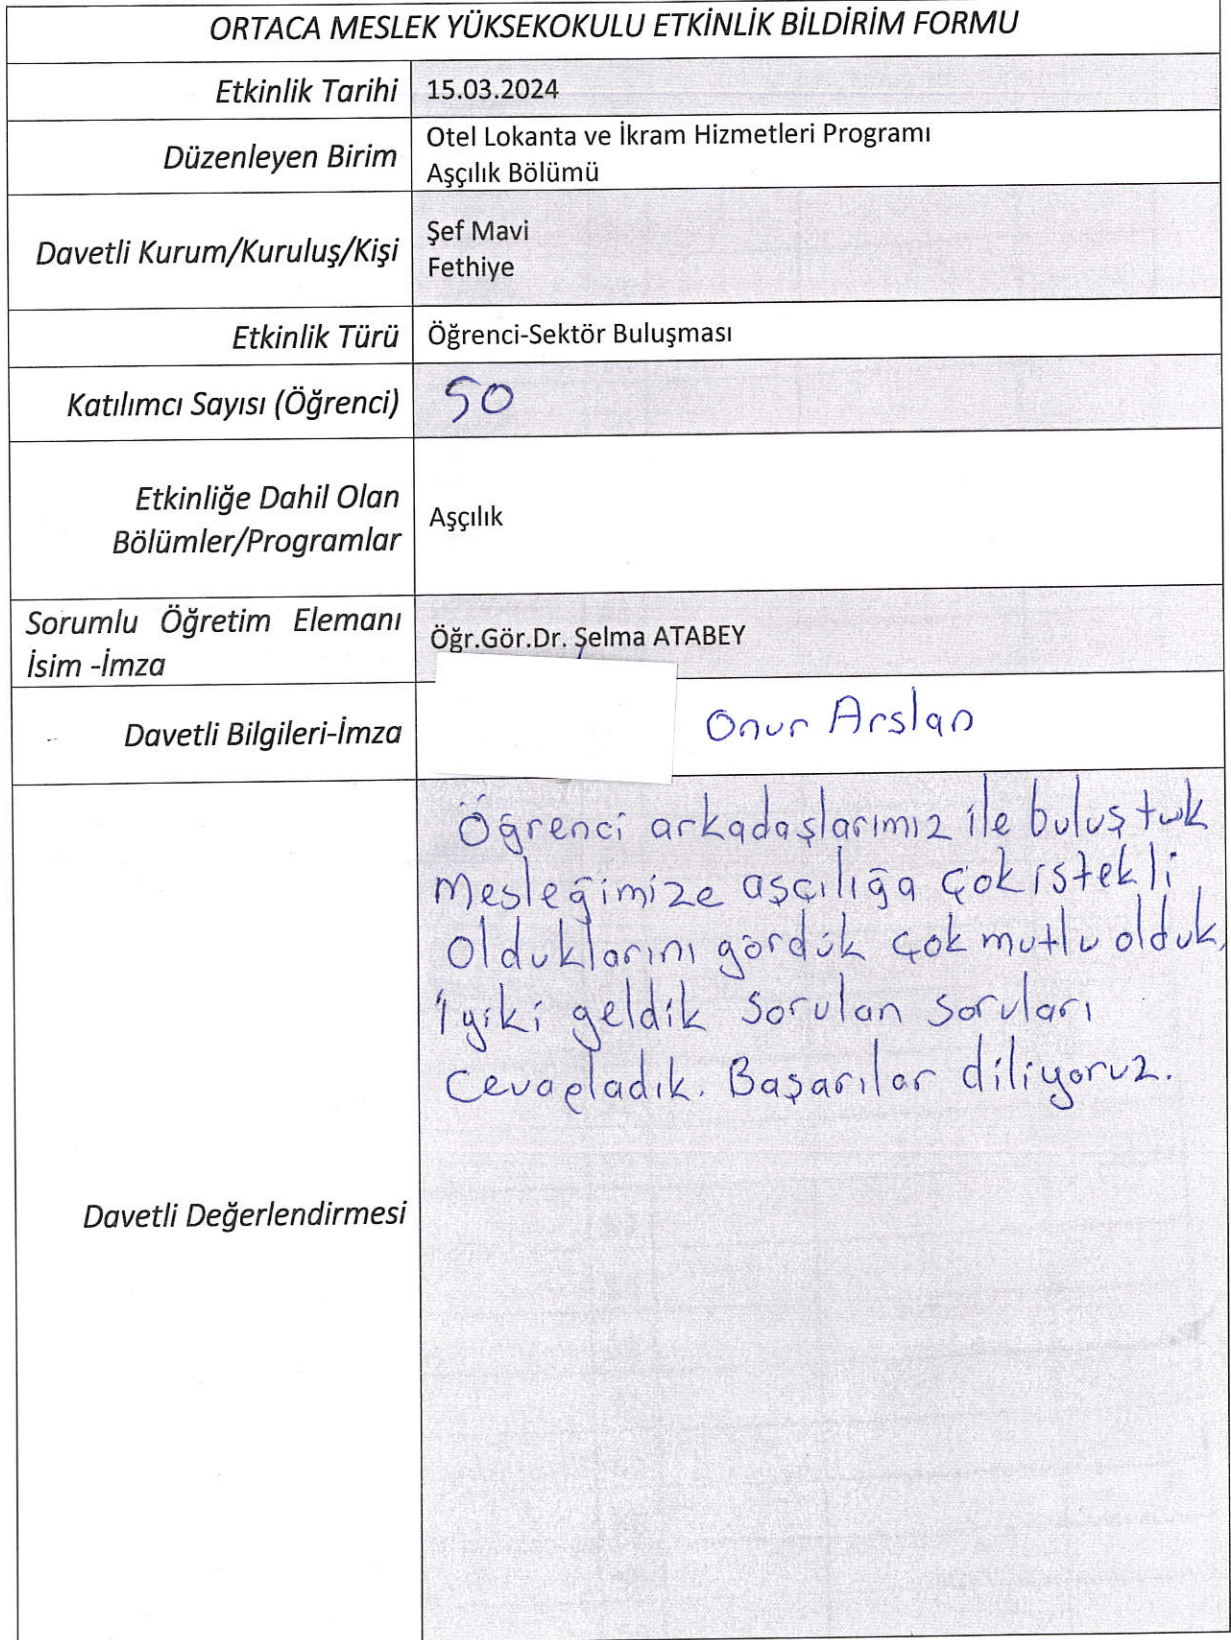 ORTACA MESLEK YÜKSEKOKULU ETKİNLİK BİLDİRİM FORMU
Etkinlik Tarihi 15.03.2024
Düzenleyen Birim Otel Lokanta ve İkram Hizmetleri Programı
Aşçılık Bölümü
Davetli Kurum/Kuruluş/Kişi Şef Mavi
Fethiye
Etkinlik Türü Öğrenci-Sektör Buluşması
Katılımcı Sayısı (Öğrenci) 50
Etkinliğe Dahil Olan
Bölümler/Programlar
Aşçılık
Sorumlu Öğretim Elemanı
İsim -İmza
Öğr.Gör.Dr. Selma ATABEY
Davetli Bilgileri-İmza Onur Arslan
Davetli Değerlendirmesi
Öğrenci arkadaşlarımız ile buluştuk
Mesleğimize aşçılığa çok istekli
olduklarını gördük çok mutlu olduk,
iyiki geldik sorulan soruları
cevapladık. Başarılar diliyoruz.